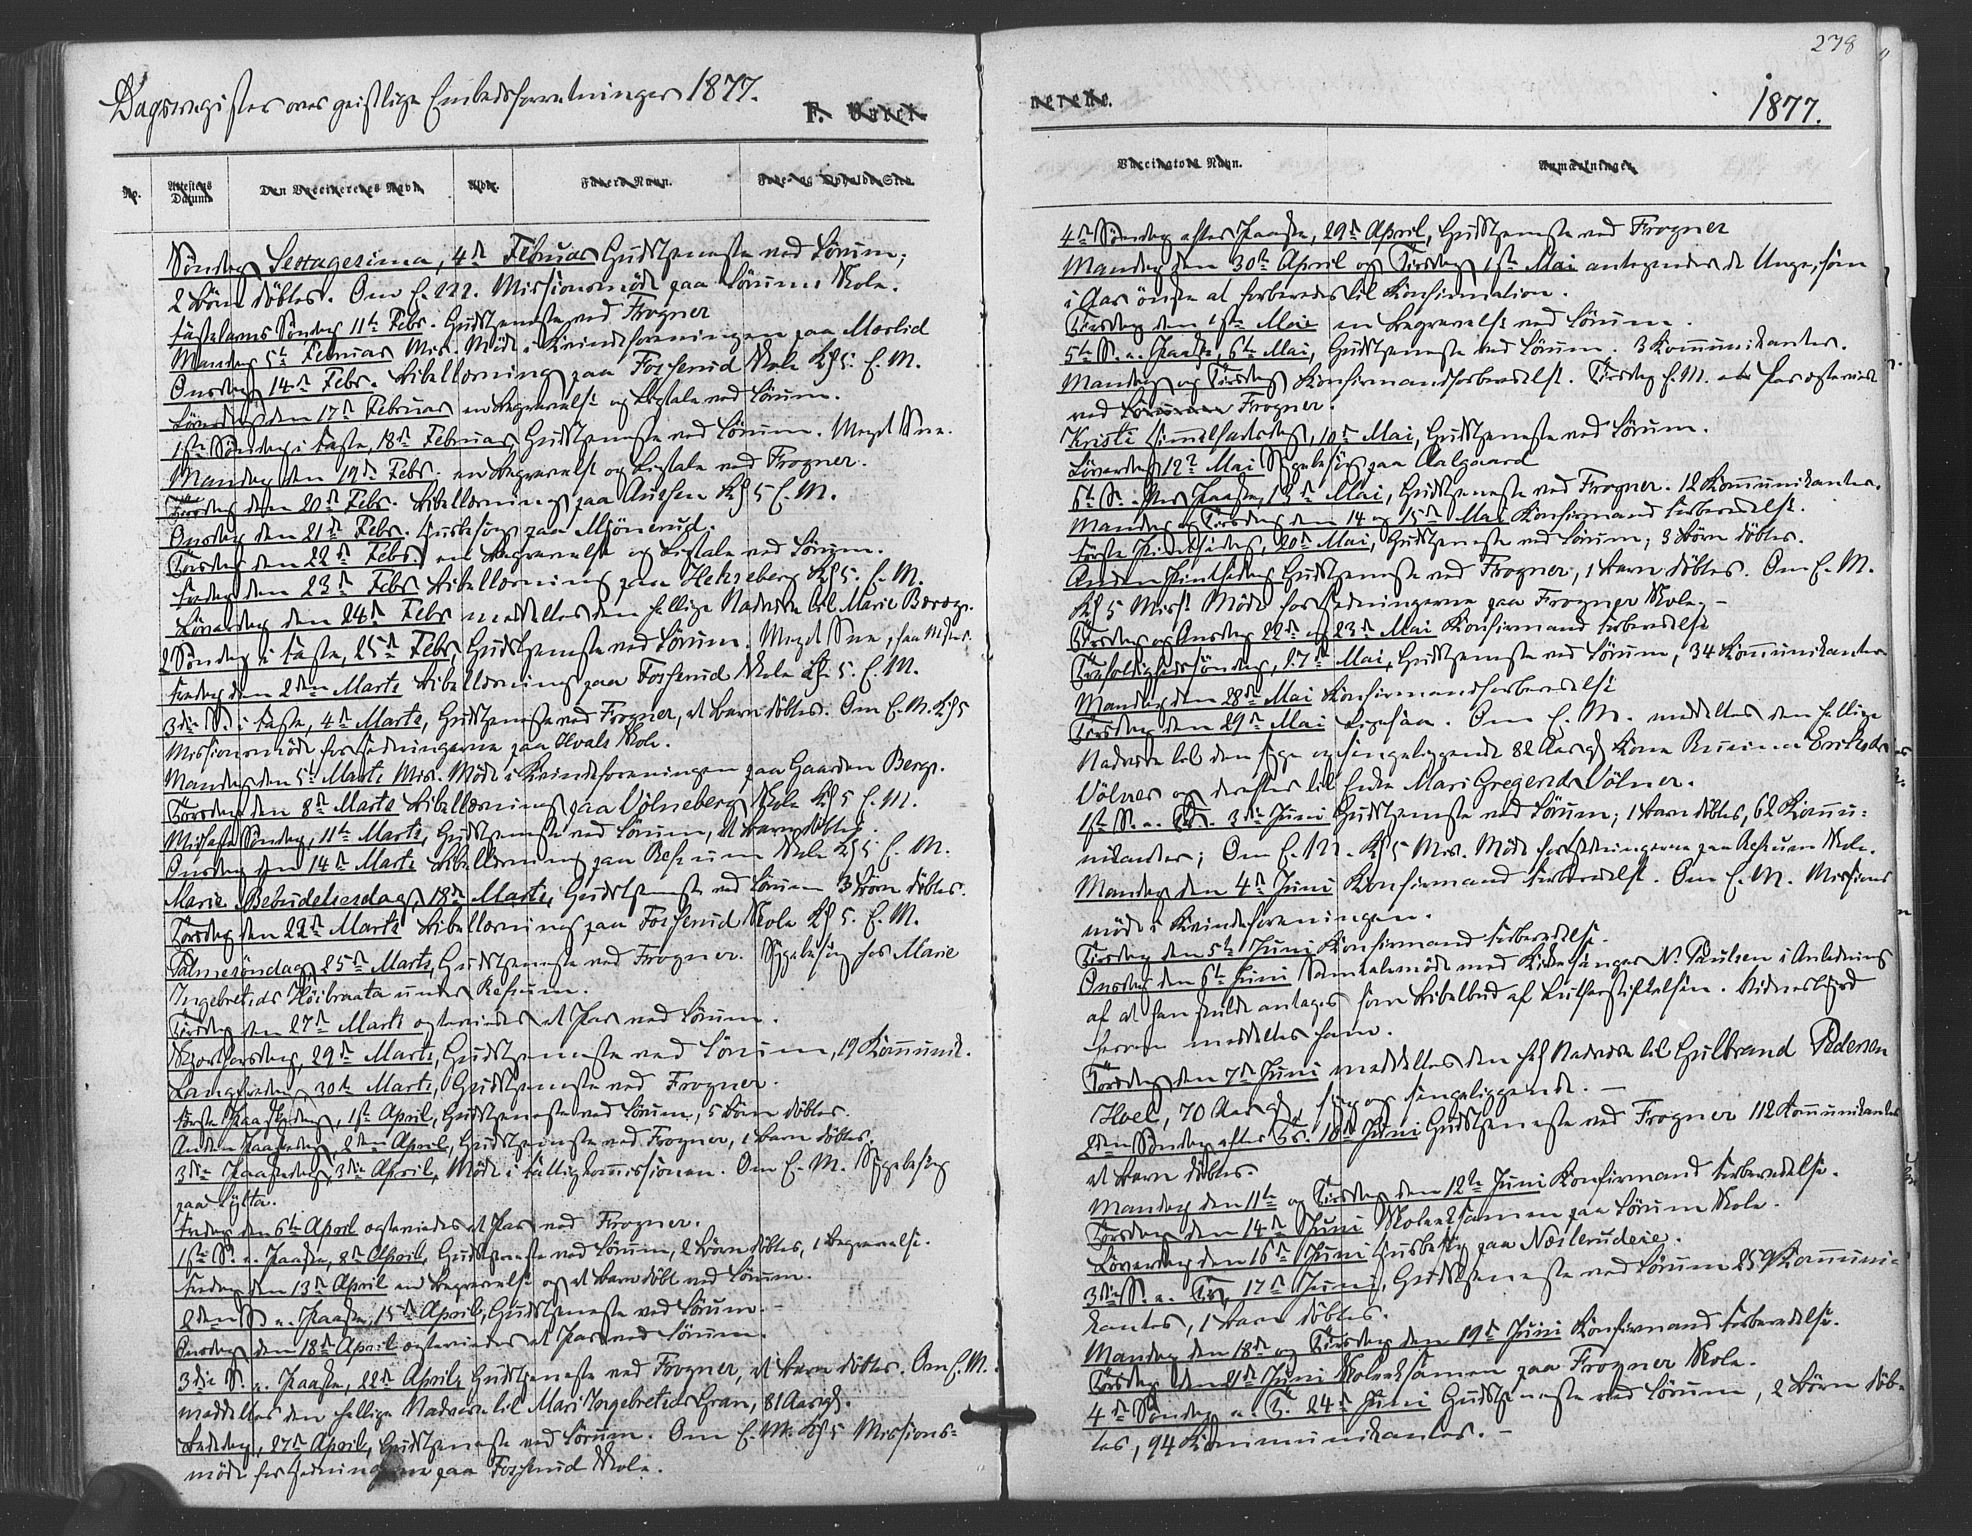 Dagsregister over geistlige Embedsforretninger 1877.
F. Vacci-
No.
Attestens Datum.
Den Vaccineredes Navn
Alder.
Faders Navn.
Føde- og Opholds-Sted
Søndag Sexagesima, 4de Februar Gudstjeneste ved Sørum;
2 Børn døbtes. Om E.M. Missionsmöde paa Sörum Skole.
Fastelavns Søndag 11te Febr. Gudstjeneste ved Frogner
Mandag 5te Februar Mis. Möde i Kvindeforeningen paa Mærlid
Onsdag 14de Febr. Bibellæsning paa Fossenud Skole Kl 5. E.M.
Løverdag den 17de Februar en Begravelse og Ligtale ved Sørum.
1ste Søndag i Faste, 18de Februar Gudstjeneste ved Sörum. Meget Sne.
Mandag den 19de Febr. en Begravelse og Ligtale ved Frogner.
Tirsdag den 20de Febr. Bibellæsning paa Kl 5 E.M.
Onsdag den 21de Febr. Husbesøg paa Mjönerud.
Torsdag den 22de Febr. en Begravelse og Ligtale ved Sörum.
Fredag den 23de Febr Bibellæsning paa Hekseberg Kl 5. E.M.
Löverdag den 24de Febr meddeltes den hellige Nadvere til Marie Bereg.
2 Søndag i Faste, 25de Febr, Gudstjeneste ved Sörum. Meget Sne,
Fredag den 2den Marts Bibellæsning paa Fossenud Skole Kl. 5. E.M.
3die S. i Faste, 4de Marts, Gudstjeneste ved Frogner, et Barn döbtes. Om E.M. Kl 5
Missionsmöde for Hedningerne paa Hvals Skole.
Mandag den 5te Marts Mis. Möde i Kvindeforeningen paa Gaarden Berg.
Torsdag den 8de Marts Bibellæsning paa Völneberg Skole Kl 5 E.M.
Midfaste Søndag, 11te Marts, Gudstjeneste ved Sörum, et Barn döbtes.
Onsdag den 14de Marts Bibellæsning paa Refsum Skole Kl 5 E.M.
Marie Bebudelsesdag, 18de Marts, Gudstjeneste ved Sörum 3 Börn döbtes.
Torsdag den 22de Marts Bibellæsning paa Fossenud Skole Kl 5. E.M.
Palmesöndag, 25de Marts, Gudstjeneste ved Frogner. Sygebesøg hos Marie
Ingebretsds Höibraata under Refsum.
Tirsdag den 27de Marts ægteviedes et Par ved Sörum.
Skjærtorsdag, 29de Marts, Gudstjeneste ved Sörum, 19 Kommunik.
Langfredag 30te Marts, Gudstjeneste ved Frogner.
Første Paaskedag, 1ste April, Gudstjeneste ved Sörum, 5 Börn döbtes.
Anden Paaskedag, 2den April, Gudstjeneste ved Frogner, 1 Barn döbtes.
3die Paaskedag, 3die April, Möde i Fattigkommissionen. Om E.M. Sygebesøg
paa Lykta.
Fredag den 6te April ægteviedes et Par ved Frogner.
1ste S. e. Paaske, 8de April, Gudstjeneste ved Sörum, 2 Börn döbtes, 1 Begravelse.
Fredag den 13de April en Begravelse og et Barn döbt ved Sörum.
2den S. e. Paaske, 15de April, Gudstjeneste ved Sörum.
Onsdag den 18de April ægteviedes et Par ved Sörum.
3die S. e. Paaske, 22de April, Gudstjeneste ved Frogner, et Barn döbtes. Om E.M.
meddeltes den hellige Nadvere til Mari Ingebretsds Gran, 81 Aar gl.
Bededag, 27de April, Gudstjeneste ved Sörum. Om E.M. Kl 5 Missions-
möde for Hedningerne paa Fossenud Skole.
278
nerede.
1877.
Vaccinators Navn.
Anmærkninger.
4de Søndag efter Paaske, 29de April, Gudstjeneste ved Frogner
Mandag den 30te April og Tirsdag 1ste Mai antegnedes de Unge, som
i Aar önske at forberedes til Konfirmation.
Tirsdag den 1ste Mai en Begravelse ved Sörum.
5te S. e. Paaske, 6te Mai, Gudstjeneste ved Sörum. 3 Kommunikanter.
Mandag og Tirsdag Konfirmandforberedelse. Tirsdag E.M. et Par ægteviet
ved Sörum Frogner.
Kristi Himmelfartsdag, 10de Mai, Gudstjeneste ved Sörum.
Löverdag 12te Mai Sygebesög paa Aalgaard
6te S. efter Paaske, 13de Mai, Gudstjeneste ved Frogner. 12 Kommunikanter.
Mandag og Tirsdag den 14 og 15de Mai Konfirmand Forberedelse.
Første Pintsedag, 20de Mai, Gudstjeneste ved Sörum, 3 Börn döbtes.
Anden Pintsedag Gudstjeneste ved Frogner, 1 Barn döbtes. Om E.M.
Kl 5 Miss. Möde for Hedningerne paa Frogner Skole.
Tirsdag og Onsdag 22de og 23de Mai Konfirmand Forberedelse
Trefoldighedssöndag, 27de Mai, Gudstjeneste ved Sörum, 34 Kommunikanter
Mandag den 28de Mai Konfirmandforberedelse
Tirsdag den 29de Mai ligesaa. Om E.M. meddeltes den hellige
Nadvere til den syge og sengeliggende 82 Aar gl Kone Eriksds
Völner og derefter til Enke Mari Gregersds Völner.
1ste S. e. Tr. 3die Juni Gudstjeneste ved Sörum; 1 Barn döbtes, 62 Kommu-
nikanter; Om E.M. Kl 5 Mis. Möde for Hedningerne paa Refsum Skole.
Mandag den 4de Juni Konfirmand Forberedelse. Om E.M. Missions
möde i Kvindeforeningen.
Tirsdag den 5te Juni Konfirmand Forberedelse.
Onsdag den 6te Juni Samtalemöde med Kirkesanger N. Paulsen i Anledning
af at han skulde antages som Bibelbud af Lutherstiftelsen. Vidnesbyrd
herom meddeltes ham.
Torsdag den 7de Juni meddeltes den hel Nadvere til Gulbrand Pedersen
Hoel, 70 Aar gl, syg og sengeliggende.
2den Søndag efter Tr. 10de Juni Gudstjeneste ved Frogner 112 Kommunikanter
et Barn döbtes.
Mandag den 11te og Tirsdag den 12te Juni Konfirmand Forberedelse.
Torsdag den 14de Juni Skoleeksamen paa Sörum Skole.
Löverdag den 16de Juni Husbesøg paa Næilerudeie.
3die S. e. Tr. 17de Juni, Gudstjeneste ved Sörum 259 Kommuni-
kanter, 1 Barn döbtes.
Mandag den 18de og Tirsdag den 19de Juni Konfirmand Forberedelse.
Torsdag den 21de Juni Skoleeksamen paa Frogner Skole.
4de Söndag e. Tr. 24de Juni Gudstjeneste ved Sörum, 2 Börn döb-
tes, 94 Kommunikanter.